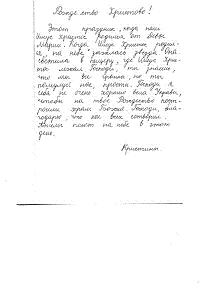 Рождество Христово!
Этот праздник, когда наш
Иисус Христос родился от Девы
Марии. Когда Иисус Христос родил-
ся, на небе зажглась звезда. Она
светила в пещеру, где Иисус Хри-
стос лежал. Господи, ты знаешь,
что мы все грешны, но ты
помилуй нас, прости. Господи я
себя не очень хорошо вела
чтобы на твоё Рождество пост-
роили храм Божий. Господи, бла-
годарю, что нас всех сотворил.
Ангелы поют на небе в этот
день.
Кристина.